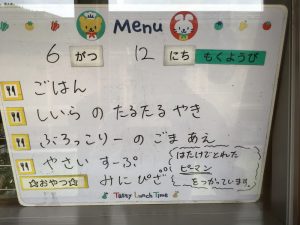 Menu
6 がつ 12 にち もくようび
ごはん
しいら の たるたる やき
ぶろっこりー の ごま あえ
やさい すーぷ
☆おやつ☆ みに ぴざ
はたけでとれた
ピーマン
をつかっています。
Tasty Lunch Time